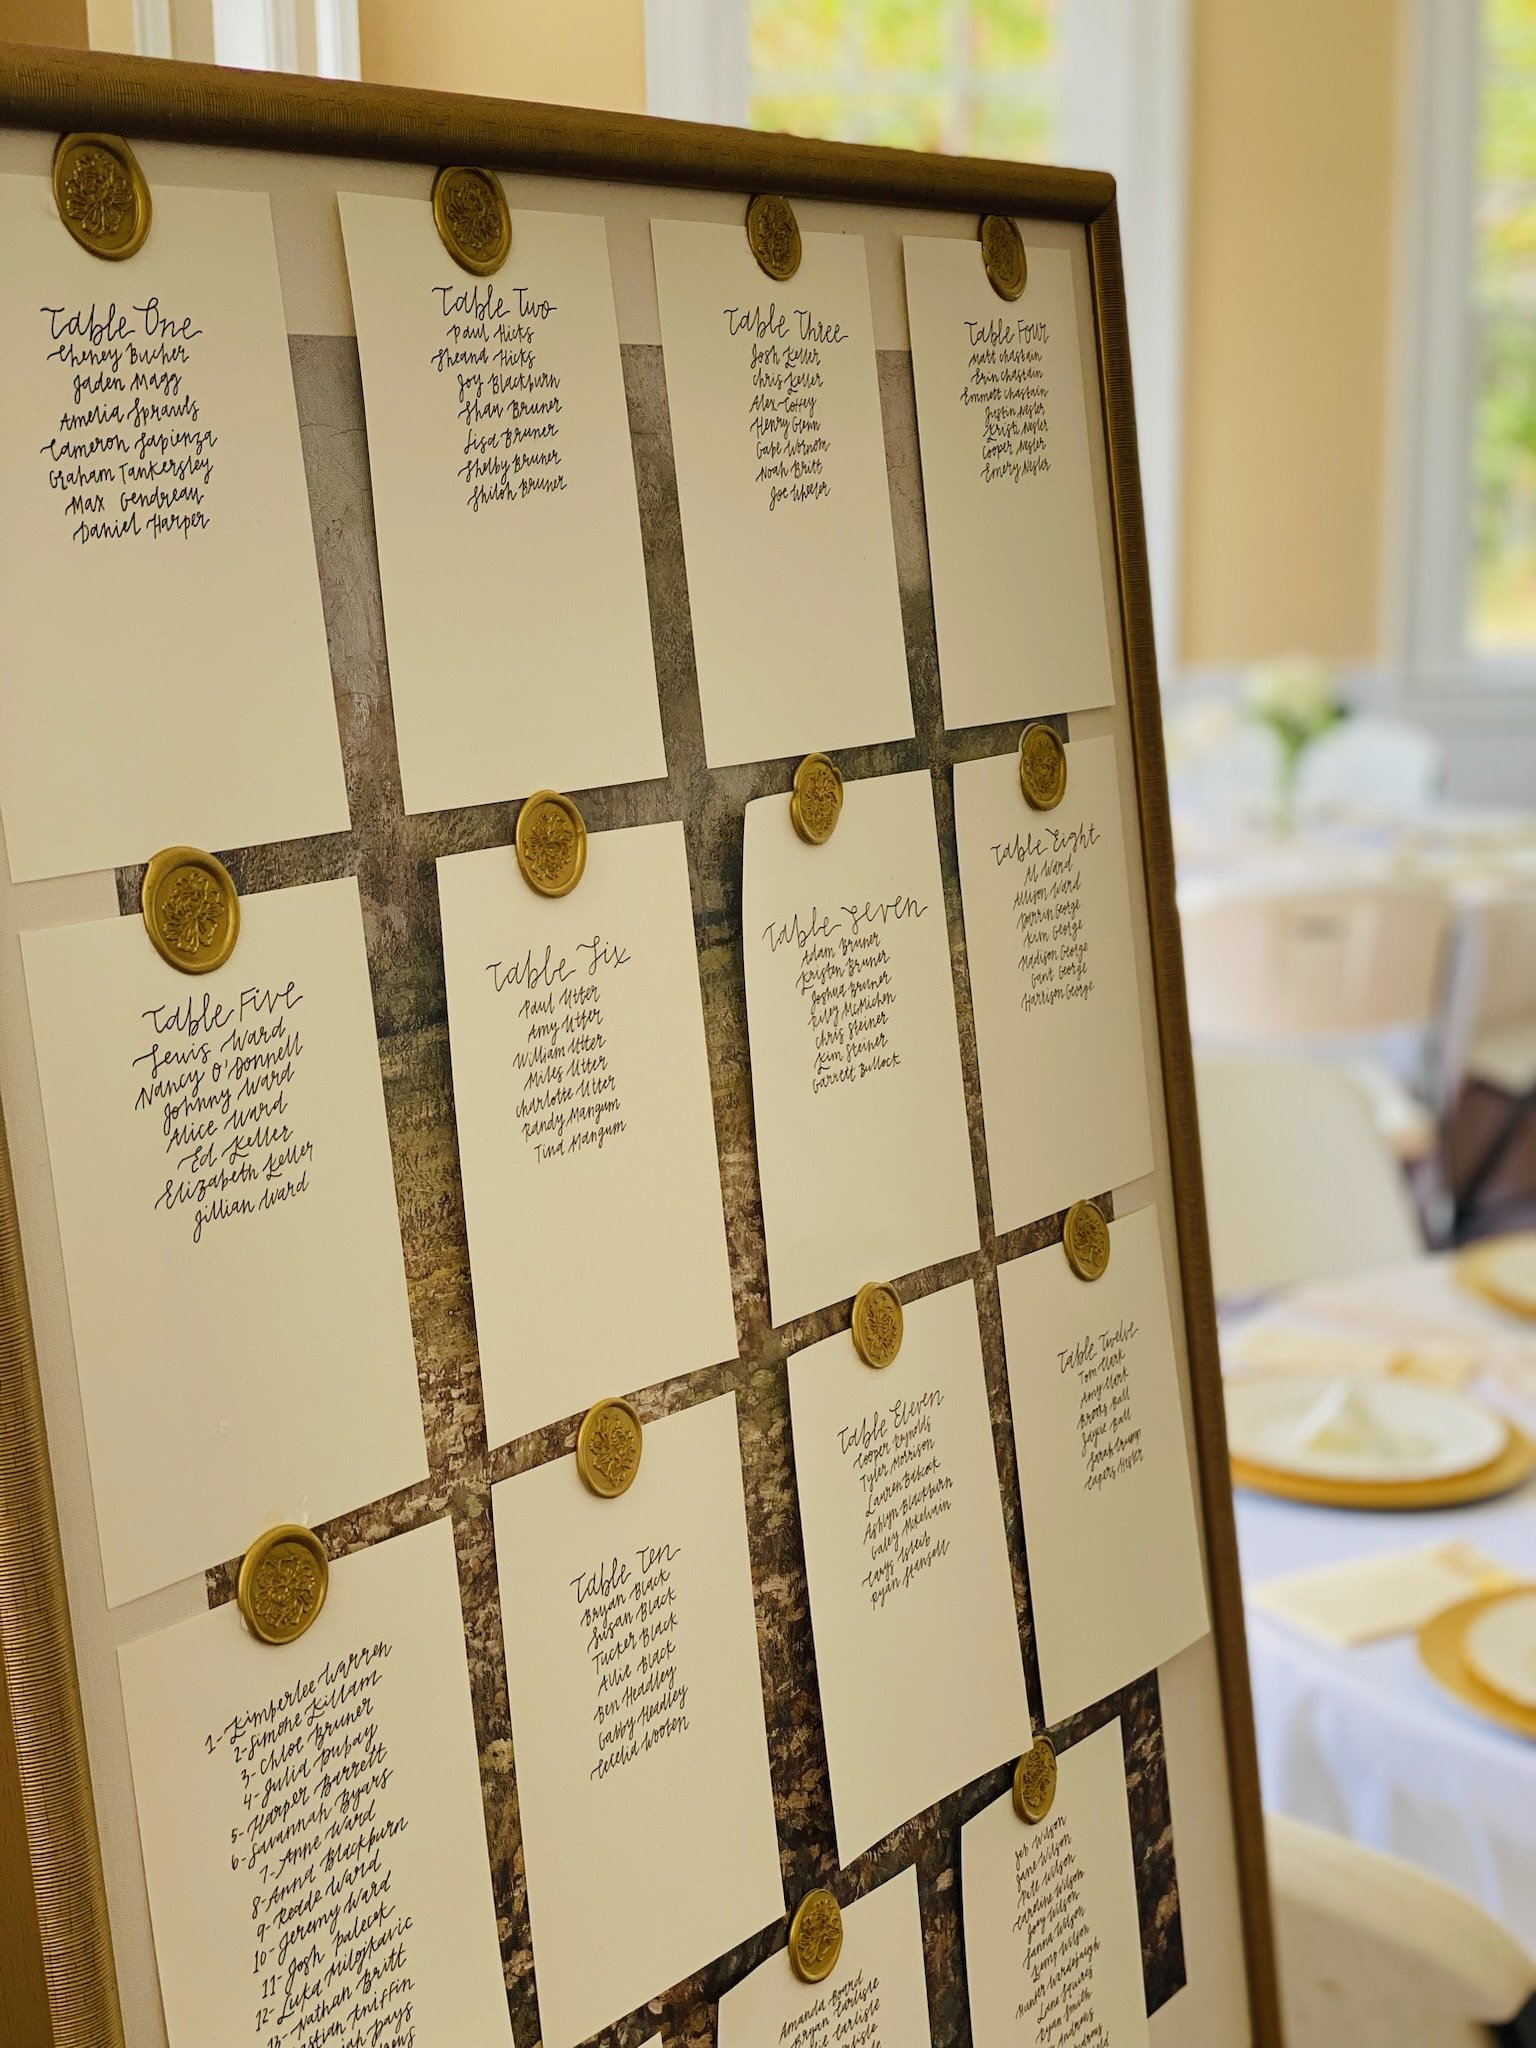 Table One
Cheney Bucher
Jaden Magg
Amelia Sprawls
Cameron Sapienza
Graham Tankersley
Max Gendreau
Daniel Harper
Table Two
Paul Hicks
Sheana Hicks
Joy Blackburn
Shan Bruner
Lisa Bruner
Shelby Bruner
Shiloh Bruner
Table Three
Josh Keller
Chris Keller
Alex Coffey
Henry Glenn
Gabe Wornom
Noah Britt
Joe Wheeler
Table Four
Matt Chastain
Erin Chastain
Emmett Chastain
Justin Nesler
Kristi Nesler
Cooper Nesler
Emery Nesler
Table Five
Lewis Ward
Nancy O'Donnell
Johnny Ward
Alice Ward
Ed Keller
Elizabeth Keller
Jillian Ward
Table Six
Paul Utter
Amy Utter
William Utter
Miles Utter
Charlotte Utter
Randy Mangum
Tina Mangum
Table Seven
Adam Bruner
Kristen Bruner
Joshua Bruner
Riley McMichen
Chris Steiner
Kim Steiner
Garrett Bullock
Table Eight
Al Ward
Allison Ward
Darrin George
Kim George
Madison George
Gant George
Harrison George
1- Kimberlee Warren
2- Simone Killam
3- Chloe Bruner
4- Julia Dupay
5- Harper Barrett
6- Savannah Byars
7- Anne Ward
8- Anna Blackburn
9- Redde Ward
10- Jeremy Ward
11- Josh Palecek
12- Luka Milojkavic
13- Nathan Britt
Kniffin
pays
Table Ten
Bryan Black
Susan Black
Tucker Black
Allie Black
Ben Headley
Gabby Headley
Cecelia Wooten
Table Eleven
Cooper Reynolds
Tyler Morrison
Lauren Babcock
Ashlyn Blackburn
Galey McKelvain
Ryan Stansell
Table Twelve
Tom Clark
Amy Clark
Brooks Ball
Jaycie Ball
Sarah Trump
Capers Hester
Amanda Board
Bryan Carlisle
Carlisle
Jeb Wilson
Jane Wilson
Pete Wilson
Caroline Wilson
Joey Wilson
Janna Wilson
Kemp Wilson
Hunter Wardepaugh
Lane Squires
Ryan Smith